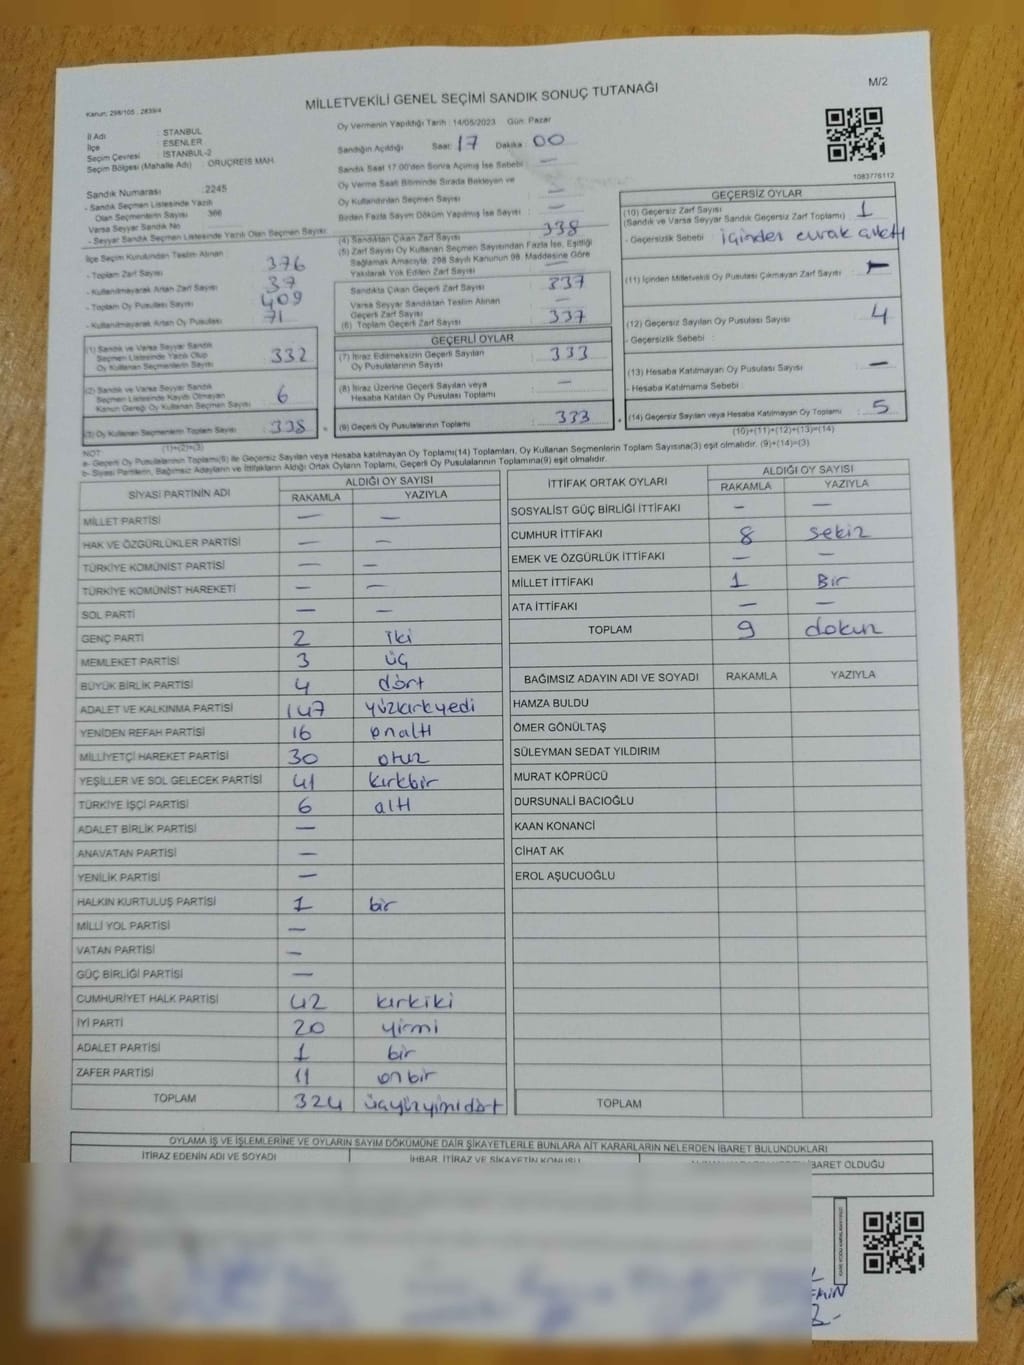 M/2
MİLLETVEKİLİ GENEL SEÇİMİ SANDIK SONUÇ TUTANAĞI
Kanun: 298/105 , 2839/4
İl Adı : STANBUL
İlçe : ESENLER
Seçim Çevresi : İSTANBUL-2
Seçim Bölgesi (Mahalle Adı) : ORUÇREİS MAH.
Sandık Numarası : 2245
- Sandık Seçmen Listesinde Yazılı
Olan Seçmenlerin Sayısı : 366
Varsa Seyyar Sandık No
- Seyyar Sandık Seçmen Listesinde Yazılı Olan Seçmen Sayısı:
İlçe Seçim Kurulundan Teslim Alınan :
- Toplam Zarf Sayısı 376
- Kullanılmayarak Artan Zarf Sayısı 37
- Toplam Oy Pusulası Sayısı 409
- Kullanılmayarak Artan Oy Pusulası 71
(1) Sandık ve Varsa Seyyar Sandık
Seçmen Listesinde Yazılı Olup
Oy Kullanan Seçmenlerin Sayısı 332
(2) Sandık ve Varsa Seyyar Sandık
Seçmen Listesinde Kayıtlı Olmayan
Kanun Gereği Oy Kullanan Seçmen Sayısı 6
(3) Oy Kullanan Seçmenlerin Toplam Sayısı : 338
(1)+(2)=(3)
Oy Vermenin Yapıldığı Tarih : 14/05/2023 Gün: Pazar
Sandığın Açıldığı Saat: 17 Dakika : 00
Sandık Saat 17.00'den Sonra Açılmış İse Sebebi : —
Oy Verme Saati Bitiminde Sırada Bekleyen ve
Oy Kullandırılan Seçmen Sayısı : —
Birden Fazla Sayım Döküm Yapılmış İse Sayısı : —
(4) Sandıktan Çıkan Zarf Sayısı 338
(5) Zarf Sayısı Oy Kullanan Seçmen Sayısından Fazla İse, Eşitliği
Sağlamak Amacıyla, 298 Sayılı Kanunun 98. Maddesine Göre
Yakılarak Yok Edilen Zarf Sayısı : —
Sandıkta Çıkan Geçerli Zarf Sayısı : 337
Varsa Seyyar Sandıktan Teslim Alınan
Geçerli Zarf Sayısı : —
(6) Toplam Geçerli Zarf Sayısı : 337
GEÇERLİ OYLAR
(7) İtiraz Edilmeksizin Geçerli Sayılan
Oy Pusulalarının Sayısı : 333
(8) İtiraz Üzerine Geçerli Sayılan veya
Hesaba Katılan Oy Pusulası Toplamı : —
(9) Geçerli Oy Pusulalarının Toplamı : 333
1083776112
GEÇERSİZ OYLAR
(10) Geçersiz Zarf Sayısı : 1
(Sandık ve Varsa Seyyar Sandık Geçersiz Zarf Toplamı)
- Geçersizlik Sebebi : içinden evrak çıktı
(11) İçinden Milletvekili Oy Pusulası Çıkmayan Zarf Sayısı : —
(12) Geçersiz Sayılan Oy Pusulası Sayısı : 4
- Geçersizlik Sebebi :
(13) Hesaba Katılmayan Oy Pusulası Sayısı : —
- Hesaba Katılmama Sebebi :
(14) Geçersiz Sayılan veya Hesaba Katılmayan Oy Toplamı : 5
(10)+(11)+(12)+(13)=(14)
NOT :
a- Geçerli Oy Pusulalarının Toplamı(9) ile Geçersiz Sayılan veya Hesaba katılmayan Oy Toplamı(14) Toplamları, Oy Kullanan Seçmenlerin Toplam Sayısına(3) eşit olmalıdır. (9)+(14)=(3)
b- Siyasi Partilerin, Bağımsız Adayların ve İttifakların Aldığı Ortak Oyların Toplamı, Geçerli Oy Pusulalarının Toplamına(9) eşit olmalıdır.
SİYASİ PARTİNİN ADI ALDIĞI OY SAYISI
RAKAMLA YAZIYLA
MİLLET PARTİSİ — —
HAK VE ÖZGÜRLÜKLER PARTİSİ — —
TÜRKİYE KOMÜNİST PARTİSİ — —
TÜRKİYE KOMÜNİST HAREKETİ — —
SOL PARTİ — —
GENÇ PARTİ 2 iki
MEMLEKET PARTİSİ 3 üç
BÜYÜK BİRLİK PARTİSİ 4 dört
ADALET VE KALKINMA PARTİSİ 147 yüzkırkyedi
YENİDEN REFAH PARTİSİ 16 onaltı
MİLLİYETÇİ HAREKET PARTİSİ 30 otuz
YEŞİLLER VE SOL GELECEK PARTİSİ 41 kırkbir
TÜRKİYE İŞÇİ PARTİSİ 6 altı
ADALET BİRLİK PARTİSİ —
ANAVATAN PARTİSİ —
YENİLİK PARTİSİ —
HALKIN KURTULUŞ PARTİSİ 1 bir
MİLLİ YOL PARTİSİ —
VATAN PARTİSİ —
GÜÇ BİRLİĞİ PARTİSİ —
CUMHURİYET HALK PARTİSİ 42 kırkiki
İYİ PARTİ 20 yirmi
ADALET PARTİSİ 1 bir
ZAFER PARTİSİ 11 onbir
TOPLAM 324 üçyüzyirmidört
İTTİFAK ORTAK OYLARI ALDIĞI OY SAYISI
RAKAMLA YAZIYLA
SOSYALİST GÜÇ BİRLİĞİ İTTİFAKI — —
CUMHUR İTTİFAKI 8 sekiz
EMEK VE ÖZGÜRLÜK İTTİFAKI — —
MİLLET İTTİFAKI 1 Bir
ATA İTTİFAKI — —
TOPLAM 9 dokuz
BAĞIMSIZ ADAYIN ADI VE SOYADI RAKAMLA YAZIYLA
HAMZA BULDU
ÖMER GÖNÜLTAŞ
SÜLEYMAN SEDAT YILDIRIM
MURAT KÖPRÜCÜ
DURSUNALİ BACIOĞLU
KAAN KONANCİ
CİHAT AK
EROL AŞUCUOĞLU
TOPLAM
OYLAMA İŞ VE İŞLEMLERİNE VE OYLARIN SAYIM DÖKÜMÜNE DAİR ŞİKAYETLERLE BUNLARA AİT KARARLARIN NELERDEN İBARET BULUNDUKLARI
İTİRAZ EDENİN ADI VE SOYADI İHBAR, İTİRAZ VE ŞİKAYETİN KONUSU İBARET OLDUĞU